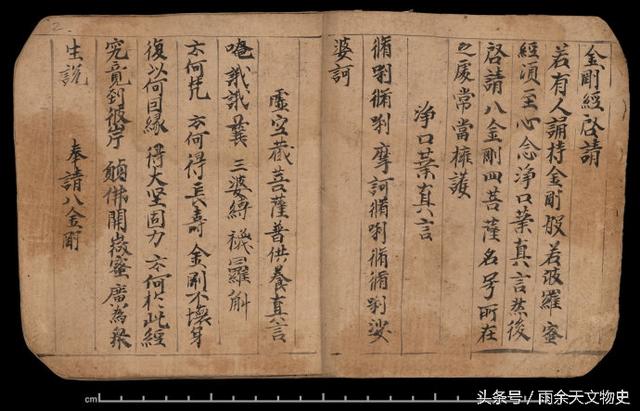 金剛經啓請
若有人誦持金剛般若波羅蜜
經須至心念淨口業真言然後
啓請八金剛四菩薩名号所在
之處常當擁護
淨口業真言
脩唎脩唎摩訶脩唎脩脩唎娑
婆訶
虛空藏菩薩普供養真言
唵 誐誐曩 三婆縛 襪羅斛
云何梵 云何得長壽 金剛不壞身
復以何因緣 得大堅固力 云何於此經
究竟到彼岸 願佛開微蜜 廣為衆
生說 奉請八金剛
2
cm
头条号／雨余天文物史